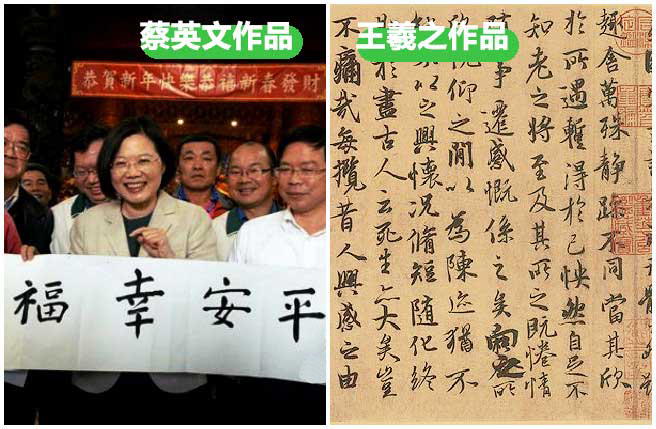 蔡英文作品
恭賀新年快樂恭禧新春發財
平安幸福
王羲之作品
趣舍萬殊靜躁不同當其欣
於所遇暫得於己快然自足不
知老之將至及其所之既惓情
事遷感慨係之矣向之所
俛仰之閒以為陳迹猶不
以之興懷況脩短隨化終
於盡古人云死生亦大矣豈
不痛哉每攬昔人興感之由